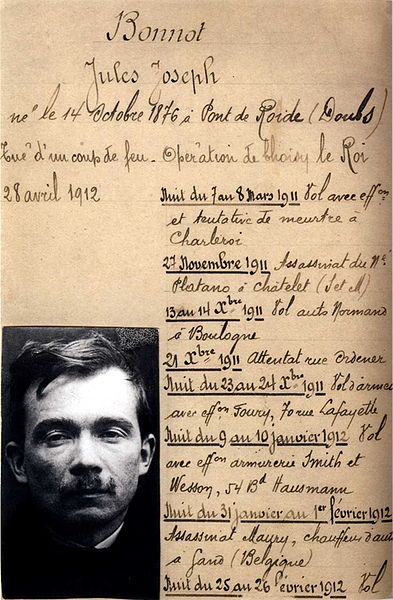 Bonnot
Jules Joseph
né le 14 Octobre 1876 à Pont de Roide (Doubs)
Tué d'un coup de feu - Opération de Choisy le Roi
28 avril 1912
Nuit du 7 au 8 Mars 1911 Vol avec eff.on
et tentative de meurtre à
Charleroi
27 Novembre 1911 Assassinat du Né
Platano à Châtelet (S et M)
13 au 14 Xbre 1911 Vol auto Normand
à Boulogne
21 Xbre 1911 Attentat rue Ordener
Nuit du 23 au 24 Xbre 1911 Vol d'armes
avec eff.on Foury, 70 rue Lafayette
Nuit du 9 au 10 janvier 1912 Vol
avec eff.on armurerie Smith et
Wesson, 54 Bd Hausmann
Nuit du 31 janvier au 1er février 1912
Assassinat Maury, chauffeur d'auto
à Gand (Belgique)
Nuit du 25 au 26 février 1912 Vol